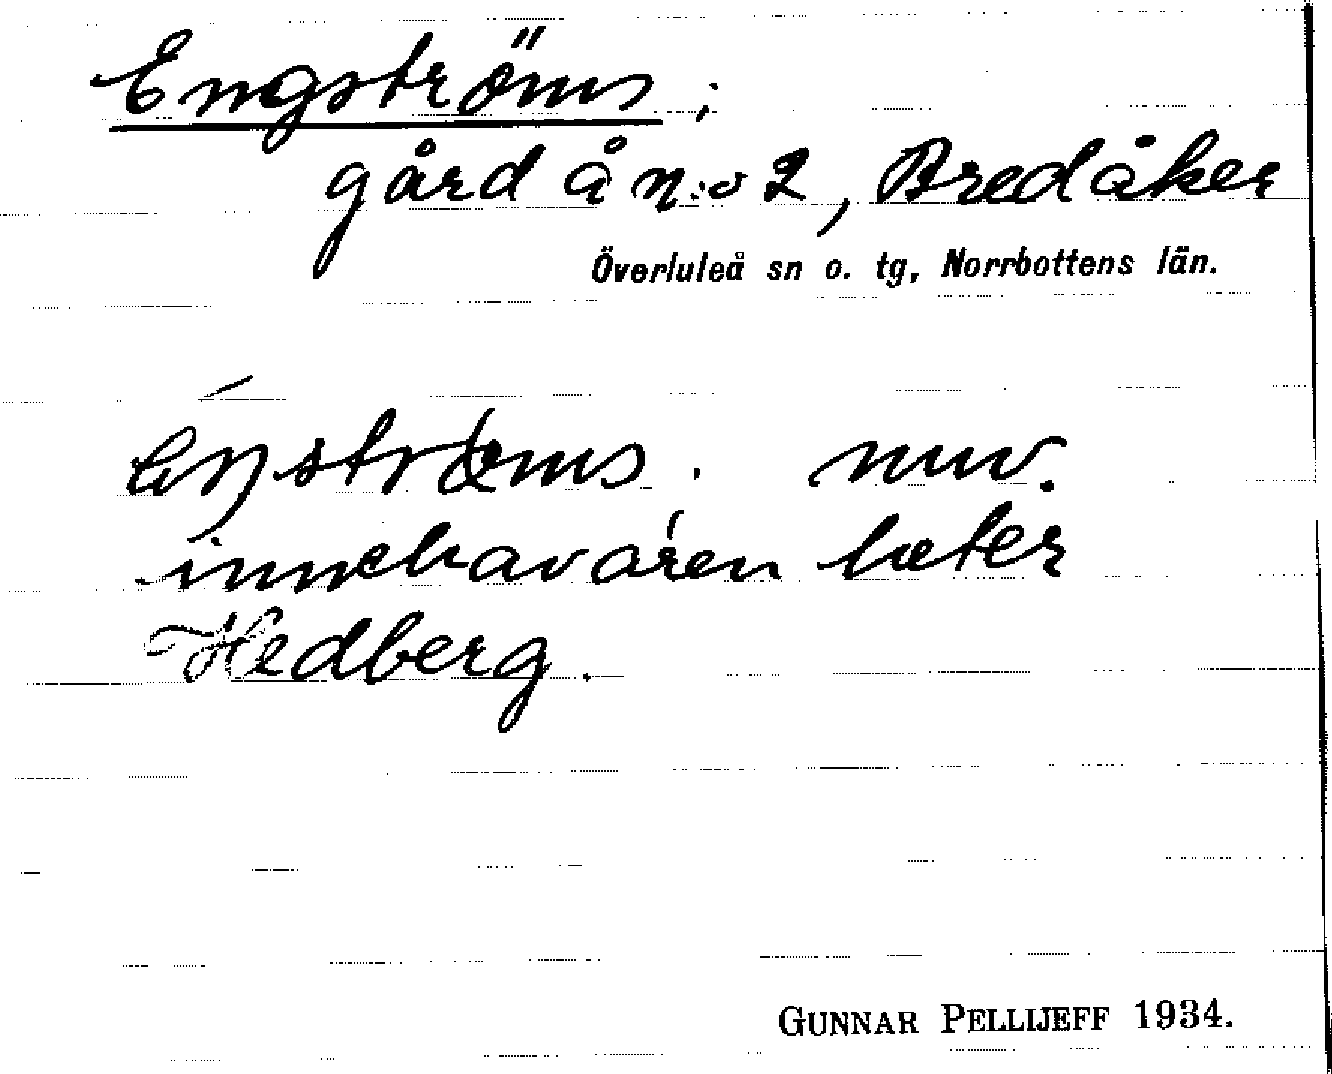 Engströms;
gård å n:o 2, Bredåker
Överluleå sn o. tg, Norrbottens län.
eŋstrøms. nuv.
innehavaren heter
Hedberg.
GUNNAR PELLIJEFF 1934.